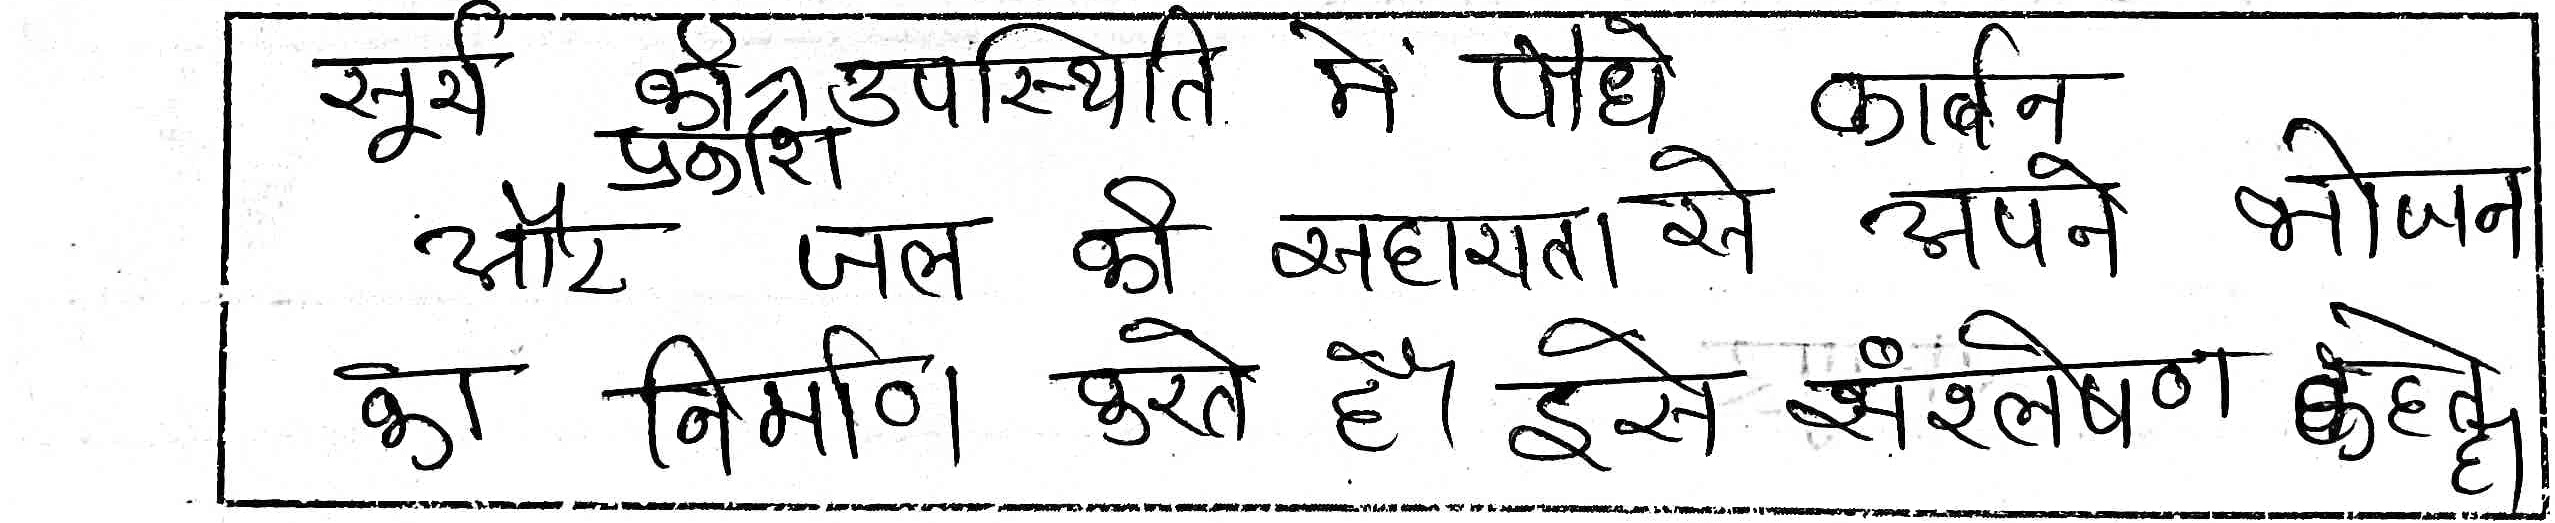 सूर्य की प्रकाश उपस्थिति में पौधे कार्बन
और जल की सहायता से अपने भोजन
का निर्माण करते है। इसे संश्लेषण कहते है।